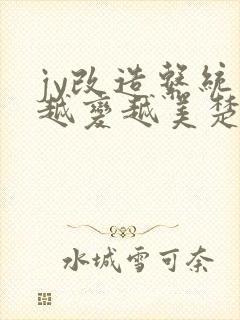 jy改造繫統
越變越美楚
水城雪可奈